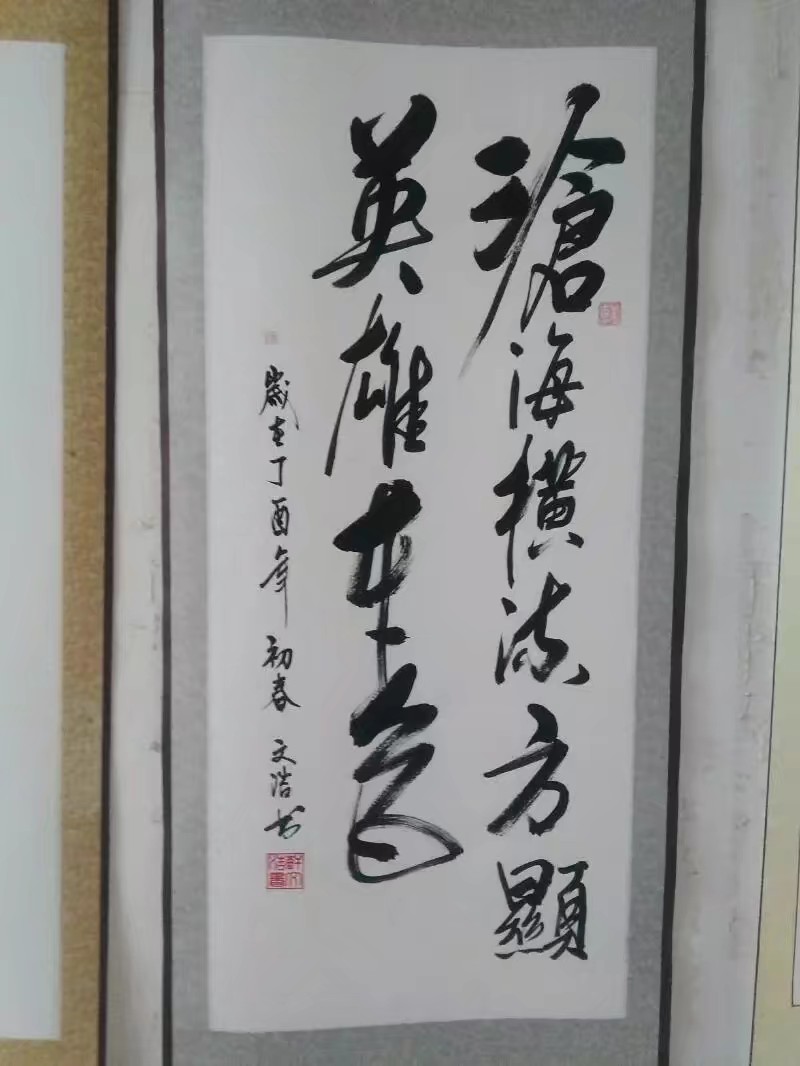 滄海橫流方顯
英雄本色
歲在丁酉年 初春 文浩书